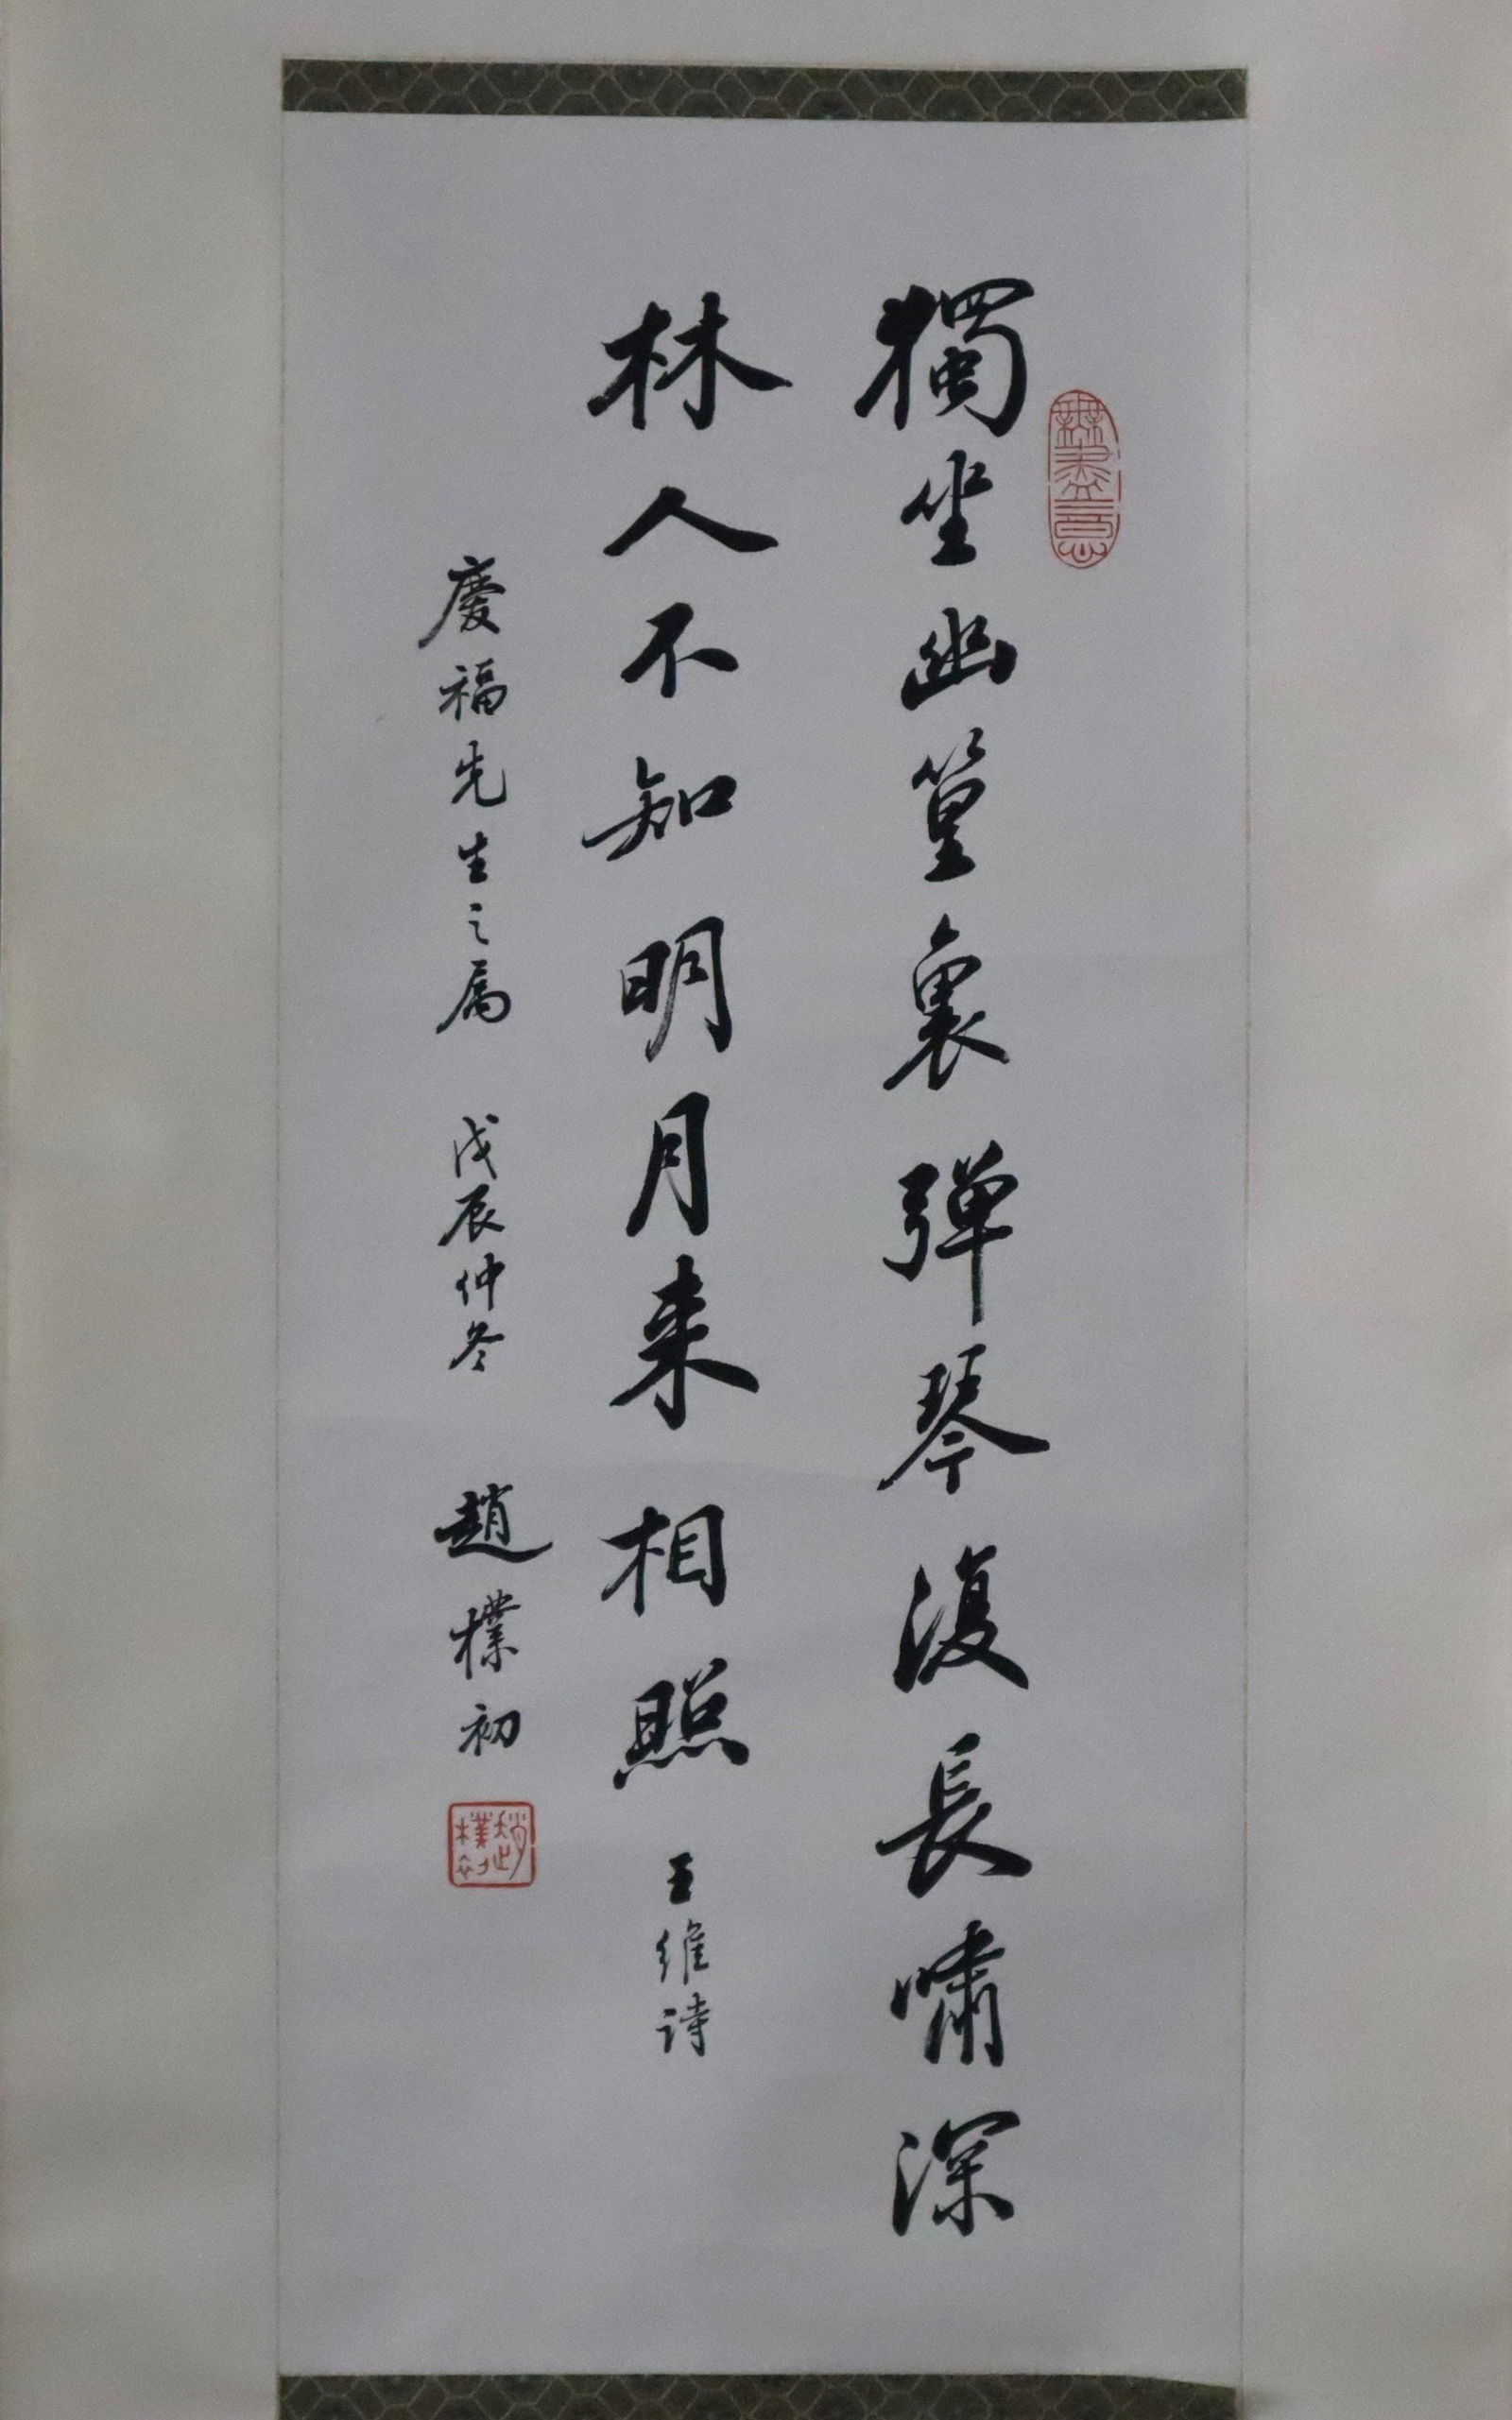 無盡意
獨坐幽篁裏弹琴復長嘯深
林人不知明月来相照 王維诗
慶福先生之属 戊辰仲冬 趙樸初
趙樸初